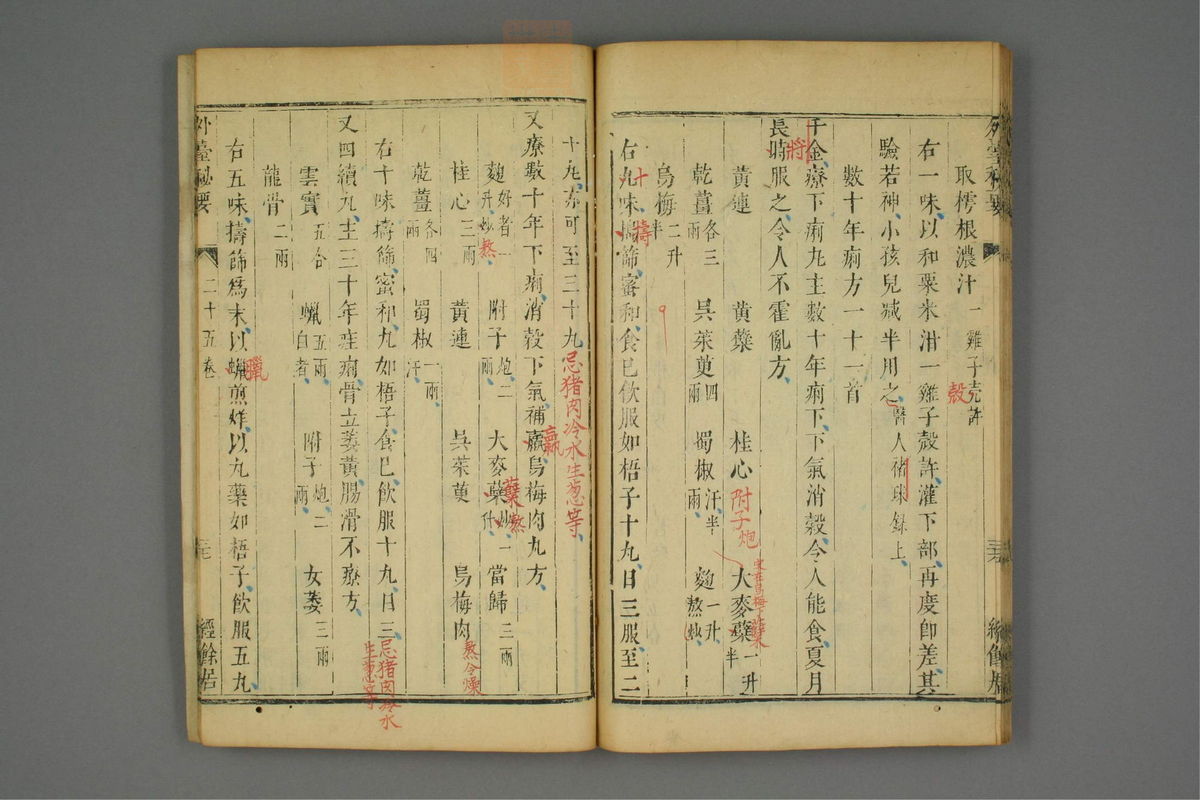 取樗根濃汁一雞子壳許
殼
右一味以和粟米泔一雞子殼許灌下部再度卽差其
驗若神小孩兒減半用之
數十年痢方一十一首
千金療下痢丸主數十年痢下下氣消穀令人能食夏月
將
長時服之令人不霍亂方
黃連 黃蘗 桂心 大麥蘗一升半
附子炮
乾薑各三兩 吳茱萸四兩 蜀椒汗半兩 麴一升熬炒
烏梅二升半
右九味擣篩蜜和食已飮服如梧子十丸日三服至二
十
擣
外臺秘要
十丸亦可至三十丸
忌猪肉冷水生葱等
又療數十年下痢消穀下氣補羸烏梅肉丸方
羸
麴好者一升炒 附子炮二兩 大麥蘗炒一升 當歸三兩
熬
蘗熬
桂心三兩 黃連 吳茱萸 烏梅肉
熬令燥
乾薑各四兩 蜀椒一兩汗
右十味擣篩蜜和丸如梧子食已飮服十丸日三
忌猪肉冷水生葱等
又四續丸主三十年痓痢骨立萎黃腸滑不療方
雲實五合 蠟五兩白者 附子炮二兩 女萎三兩
龍骨二兩
右五味擣篩爲末以蠟煎烊以丸藥如梧子飮服五丸
臘
外臺秘要 二十五卷 經餘居